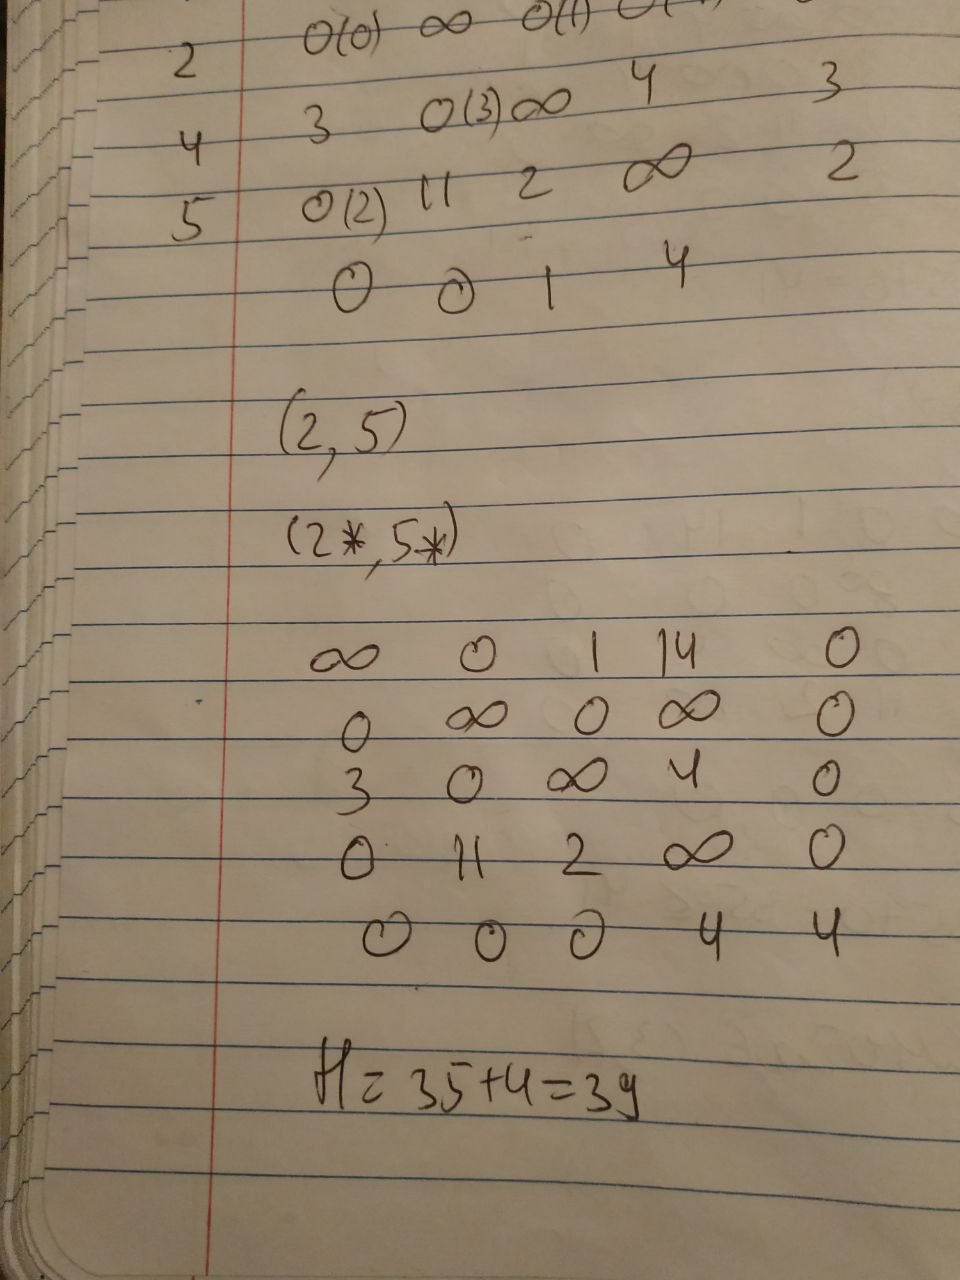 2 0(0) ∞ 0(1)
4 3 0(3) ∞ 4 3
5 0(2) 11 2 ∞ 2
0 0 1 4
(2, 5)
(2*, 5*)
∞ 0 1 14 0
0 ∞ 0 ∞ 0
3 0 ∞ 4 0
0 11 2 ∞ 0
0 0 0 4 4
H = 35+4=39